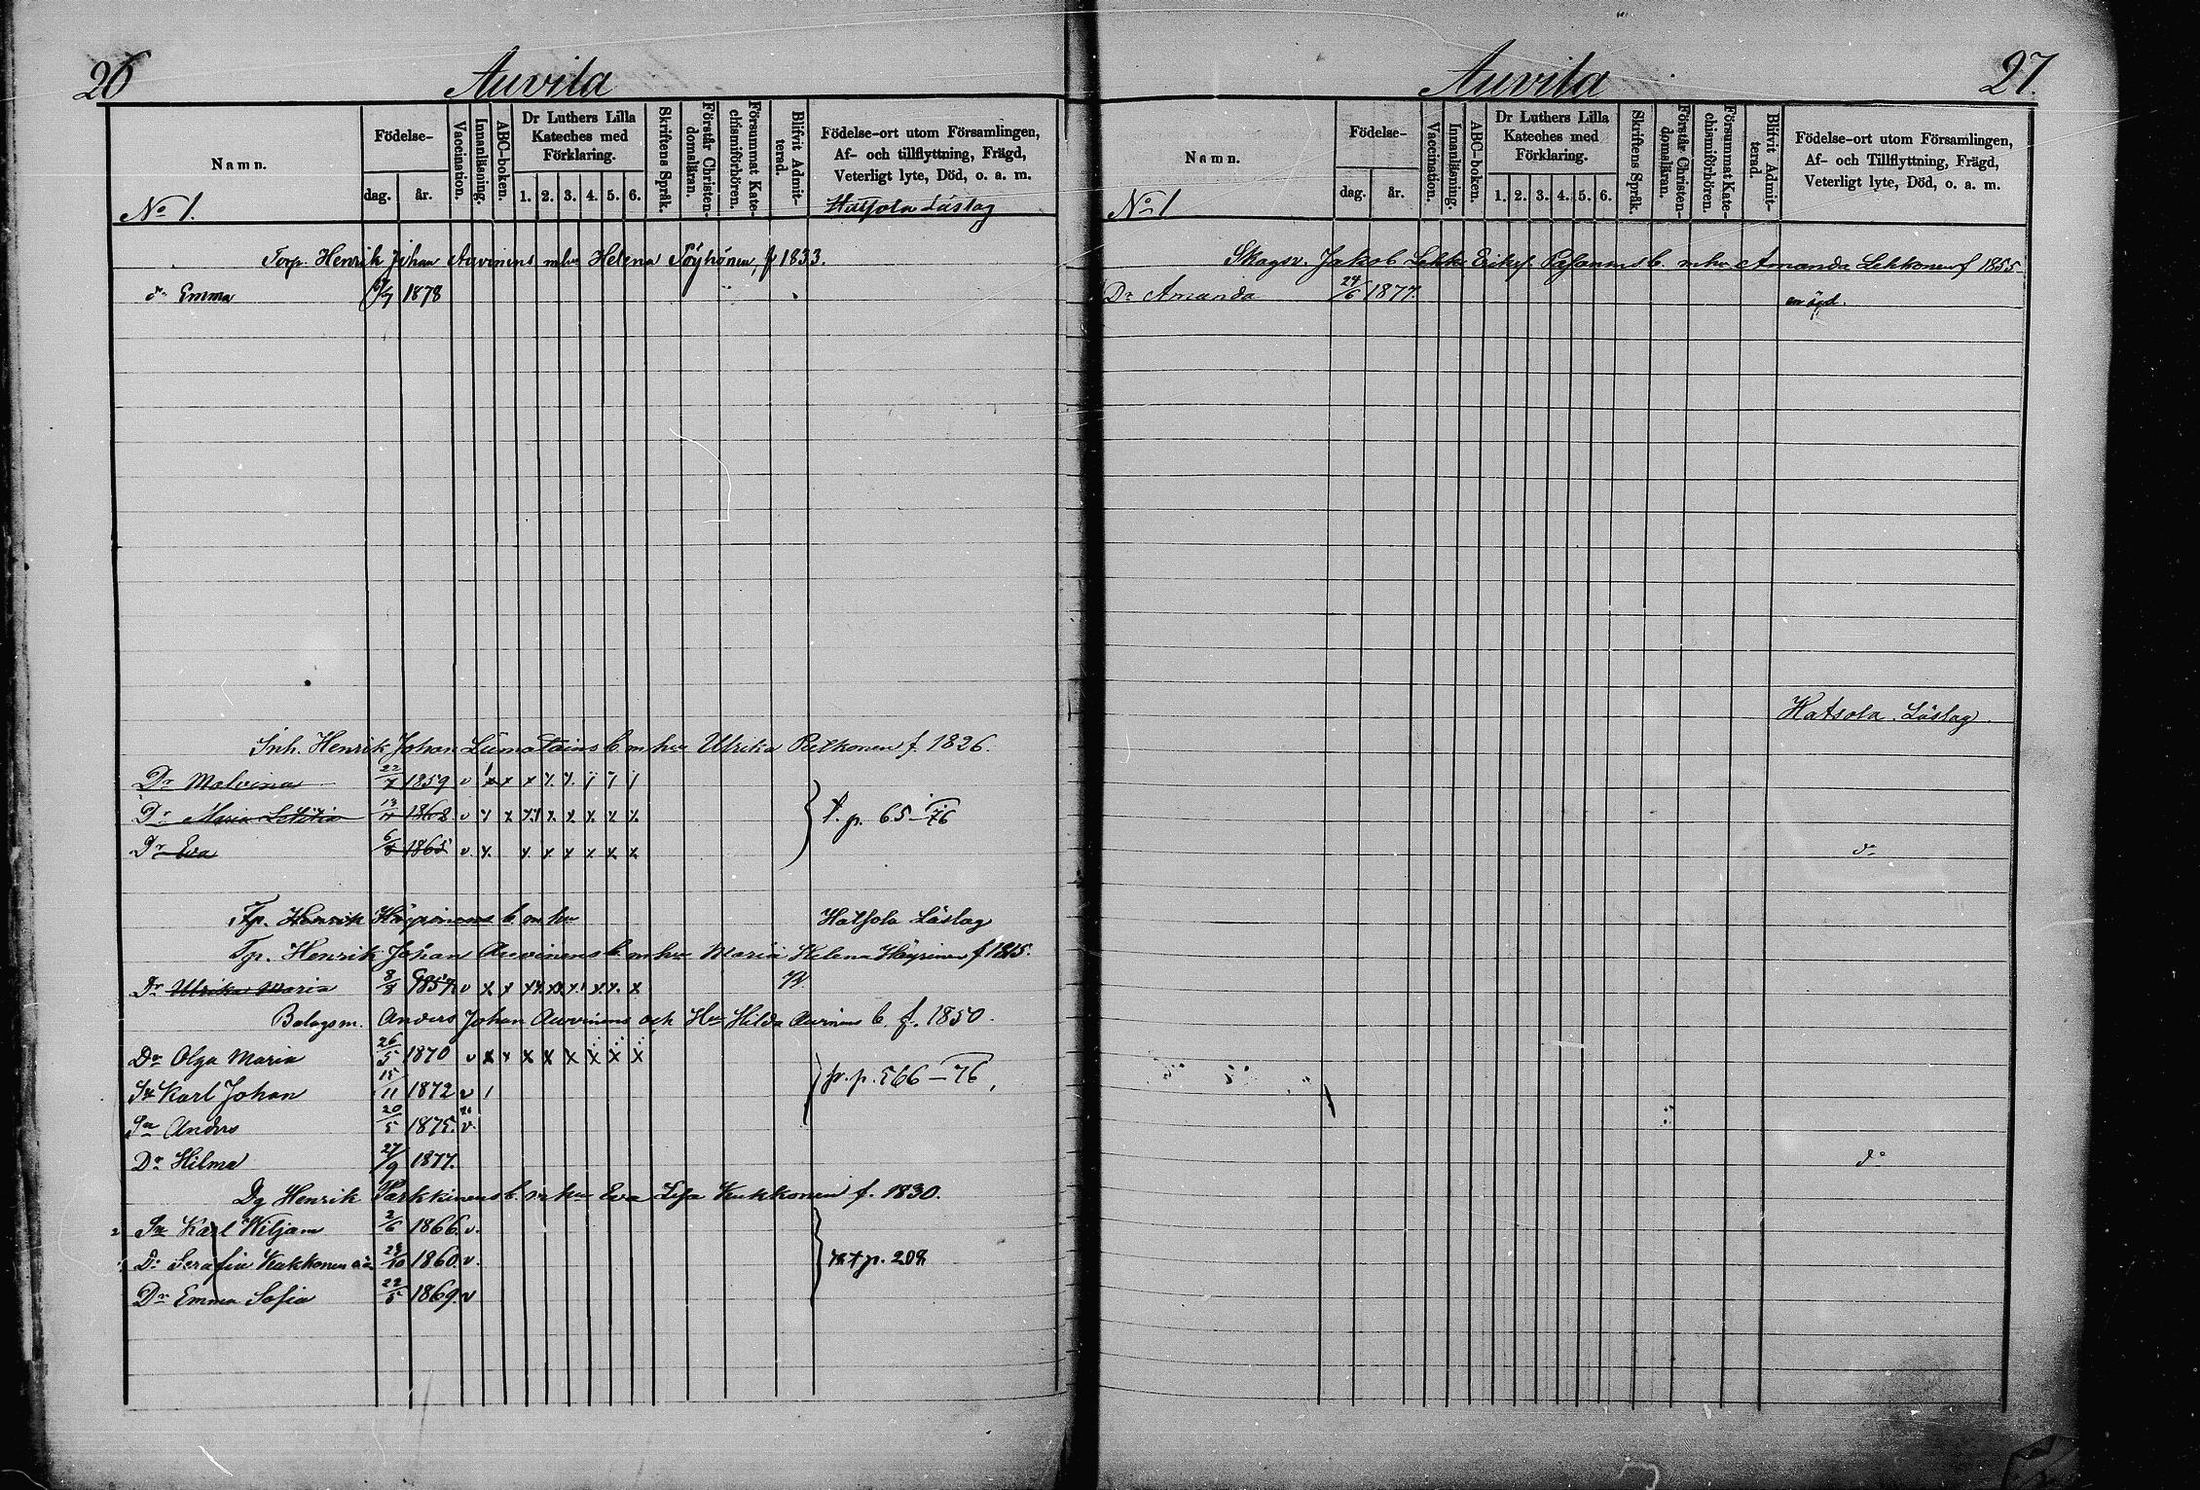 26
Auvila
Namn.
Födelse-
dag.
år.
Vaccination.
Innanläsning.
ABC-boken.
Dr Luthers Lilla
Kateches med
Förklaring.
1. 2. 3. 4. 5. 6.
Skriftens Språk.
Förstår Christen-
domsläran.
Försummat Kate-
chismiförhören.
Blifvit Admit-
terad.
Födelse-ort utom Församlingen,
Af- och tillflyttning, Frägd,
Veterligt lyte, Död, o. a. m.
No 1.
Hatsola Läslag
Torp. Henrik Johan Auvinens m hu Helena Pöyhönen, f 1833.
dr Emma 6/7 1878
Inh. Henrik Johan Liimatains b. m hu Ulrika Pulkonen f. 1826.
Dr Malvina 22/7 1859 v x x x x x
Dr Maria Letitia 13/11 1862 v x x x x x x x x
f. p. 65-76
Dr Eva 6/8 1865 v. x. x x x x x x
Tp. Henrik Häyrinens b m hu Hatsola Läslag
Tp. Henrik Johan Auvinens b. m hu Maria Helena Häyrinen f 1815.
Dr Ulrika Maria 8/8 1857 v x x x x x x x x
Bolagsm. Anders Johan Auvinens och Hu Hilda Auvinens b. f. 1850.
Dr Olga Maria 26/5 1870 v x x x x x x x x
Sn Karl Johan 15/11 1872 v 1
fr. p. 566-76
Sn Anders 20/5 1875. v.
Dr Hilma 27/9 1877.
Dg Henrik Parkkinens b. m hu Eva Lisa Kukkonen f. 1830.
2 Sn Karl Wiljam 2/6 1866. v.
1 Dr Serafia Kukkonen 28/10 1860. v.
p. 208
Dr Emma Sofia 22/5 1869. v
27.
Auvila
Namn.
Födelse-
dag.
år.
Vaccination.
Innanläsning.
ABC-boken.
Dr Luthers Lilla
Kateches med
Förklaring.
1. 2. 3. 4. 5. 6.
Skriftens Språk.
Förstår Christen-
domsläran.
Försummat Kate-
chismiförhören.
Blifvit Admit-
terad.
Födelse-ort utom Församlingen,
Af- och Tillflyttning, Frägd,
Veterligt lyte, Död, o. a. m.
No 1
Skogsv. Jakob Lekk Eriks. Pasanens b. m hu Amanda Lekkonen f 1855
Dr Amanda 24/6 1877.
Hatsola Läslag.
do
do